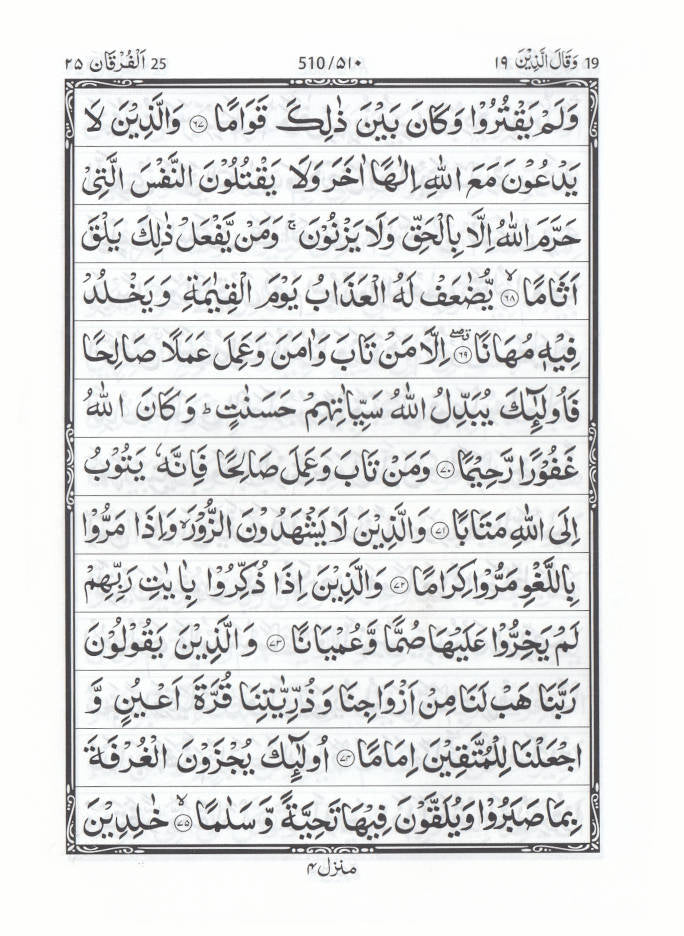 19 وَقَالَ الَّذِيْنَ ١٩ 510/٥١٠ 25 اَلْفُرْقَان ٢٥
وَلَمْ يَقْتُرُوْا وَكَانَ بَيْنَ ذٰلِكَ قَوَامًا ﴿٦٧﴾ وَالَّذِيْنَ لَا
يَدْعُوْنَ مَعَ اللّٰهِ اِلٰهًا اٰخَرَ وَلَا يَقْتُلُوْنَ النَّفْسَ الَّتِيْ
حَرَّمَ اللّٰهُ اِلَّا بِالْحَقِّ وَلَا يَزْنُوْنَ ۚ وَمَنْ يَّفْعَلْ ذٰلِكَ يَلْقَ
اَثَامًا ﴿٦٨﴾ۙ يُّضٰعَفْ لَهُ الْعَذَابُ يَوْمَ الْقِيٰمَةِ وَيَخْلُدْ
فِيْهٖ مُهَانًا ﴿٦٩﴾ۗۖ اِلَّا مَنْ تَابَ وَاٰمَنَ وَعَمِلَ عَمَلًا صَالِحًا
فَاُولٰٓئِكَ يُبَدِّلُ اللّٰهُ سَيِّاٰتِهِمْ حَسَنٰتٍ ؕ وَكَانَ اللّٰهُ
غَفُوْرًا رَّحِيْمًا ﴿٧٠﴾ وَمَنْ تَابَ وَعَمِلَ صَالِحًا فَاِنَّهٗ يَتُوْبُ
اِلَى اللّٰهِ مَتَابًا ﴿٧١﴾ وَالَّذِيْنَ لَا يَشْهَدُوْنَ الزُّوْرَ ۙ وَاِذَا مَرُّوْا
بِاللَّغْوِ مَرُّوْا كِرَامًا ﴿٧٢﴾ وَالَّذِيْنَ اِذَا ذُكِّرُوْا بِاٰيٰتِ رَبِّهِمْ
لَمْ يَخِرُّوْا عَلَيْهَا صُمًّا وَّعُمْيَانًا ﴿٧٣﴾ وَالَّذِيْنَ يَقُوْلُوْنَ
رَبَّنَا هَبْ لَنَا مِنْ اَزْوَاجِنَا وَذُرِّيّٰتِنَا قُرَّةَ اَعْيُنٍ وَّ
اجْعَلْنَا لِلْمُتَّقِيْنَ اِمَامًا ﴿٧٤﴾ اُولٰٓئِكَ يُجْزَوْنَ الْغُرْفَةَ
بِمَا صَبَرُوْا وَيُلَقَّوْنَ فِيْهَا تَحِيَّةً وَّسَلٰمًا ﴿٧٥﴾ۙ خٰلِدِيْنَ
منزل ٤